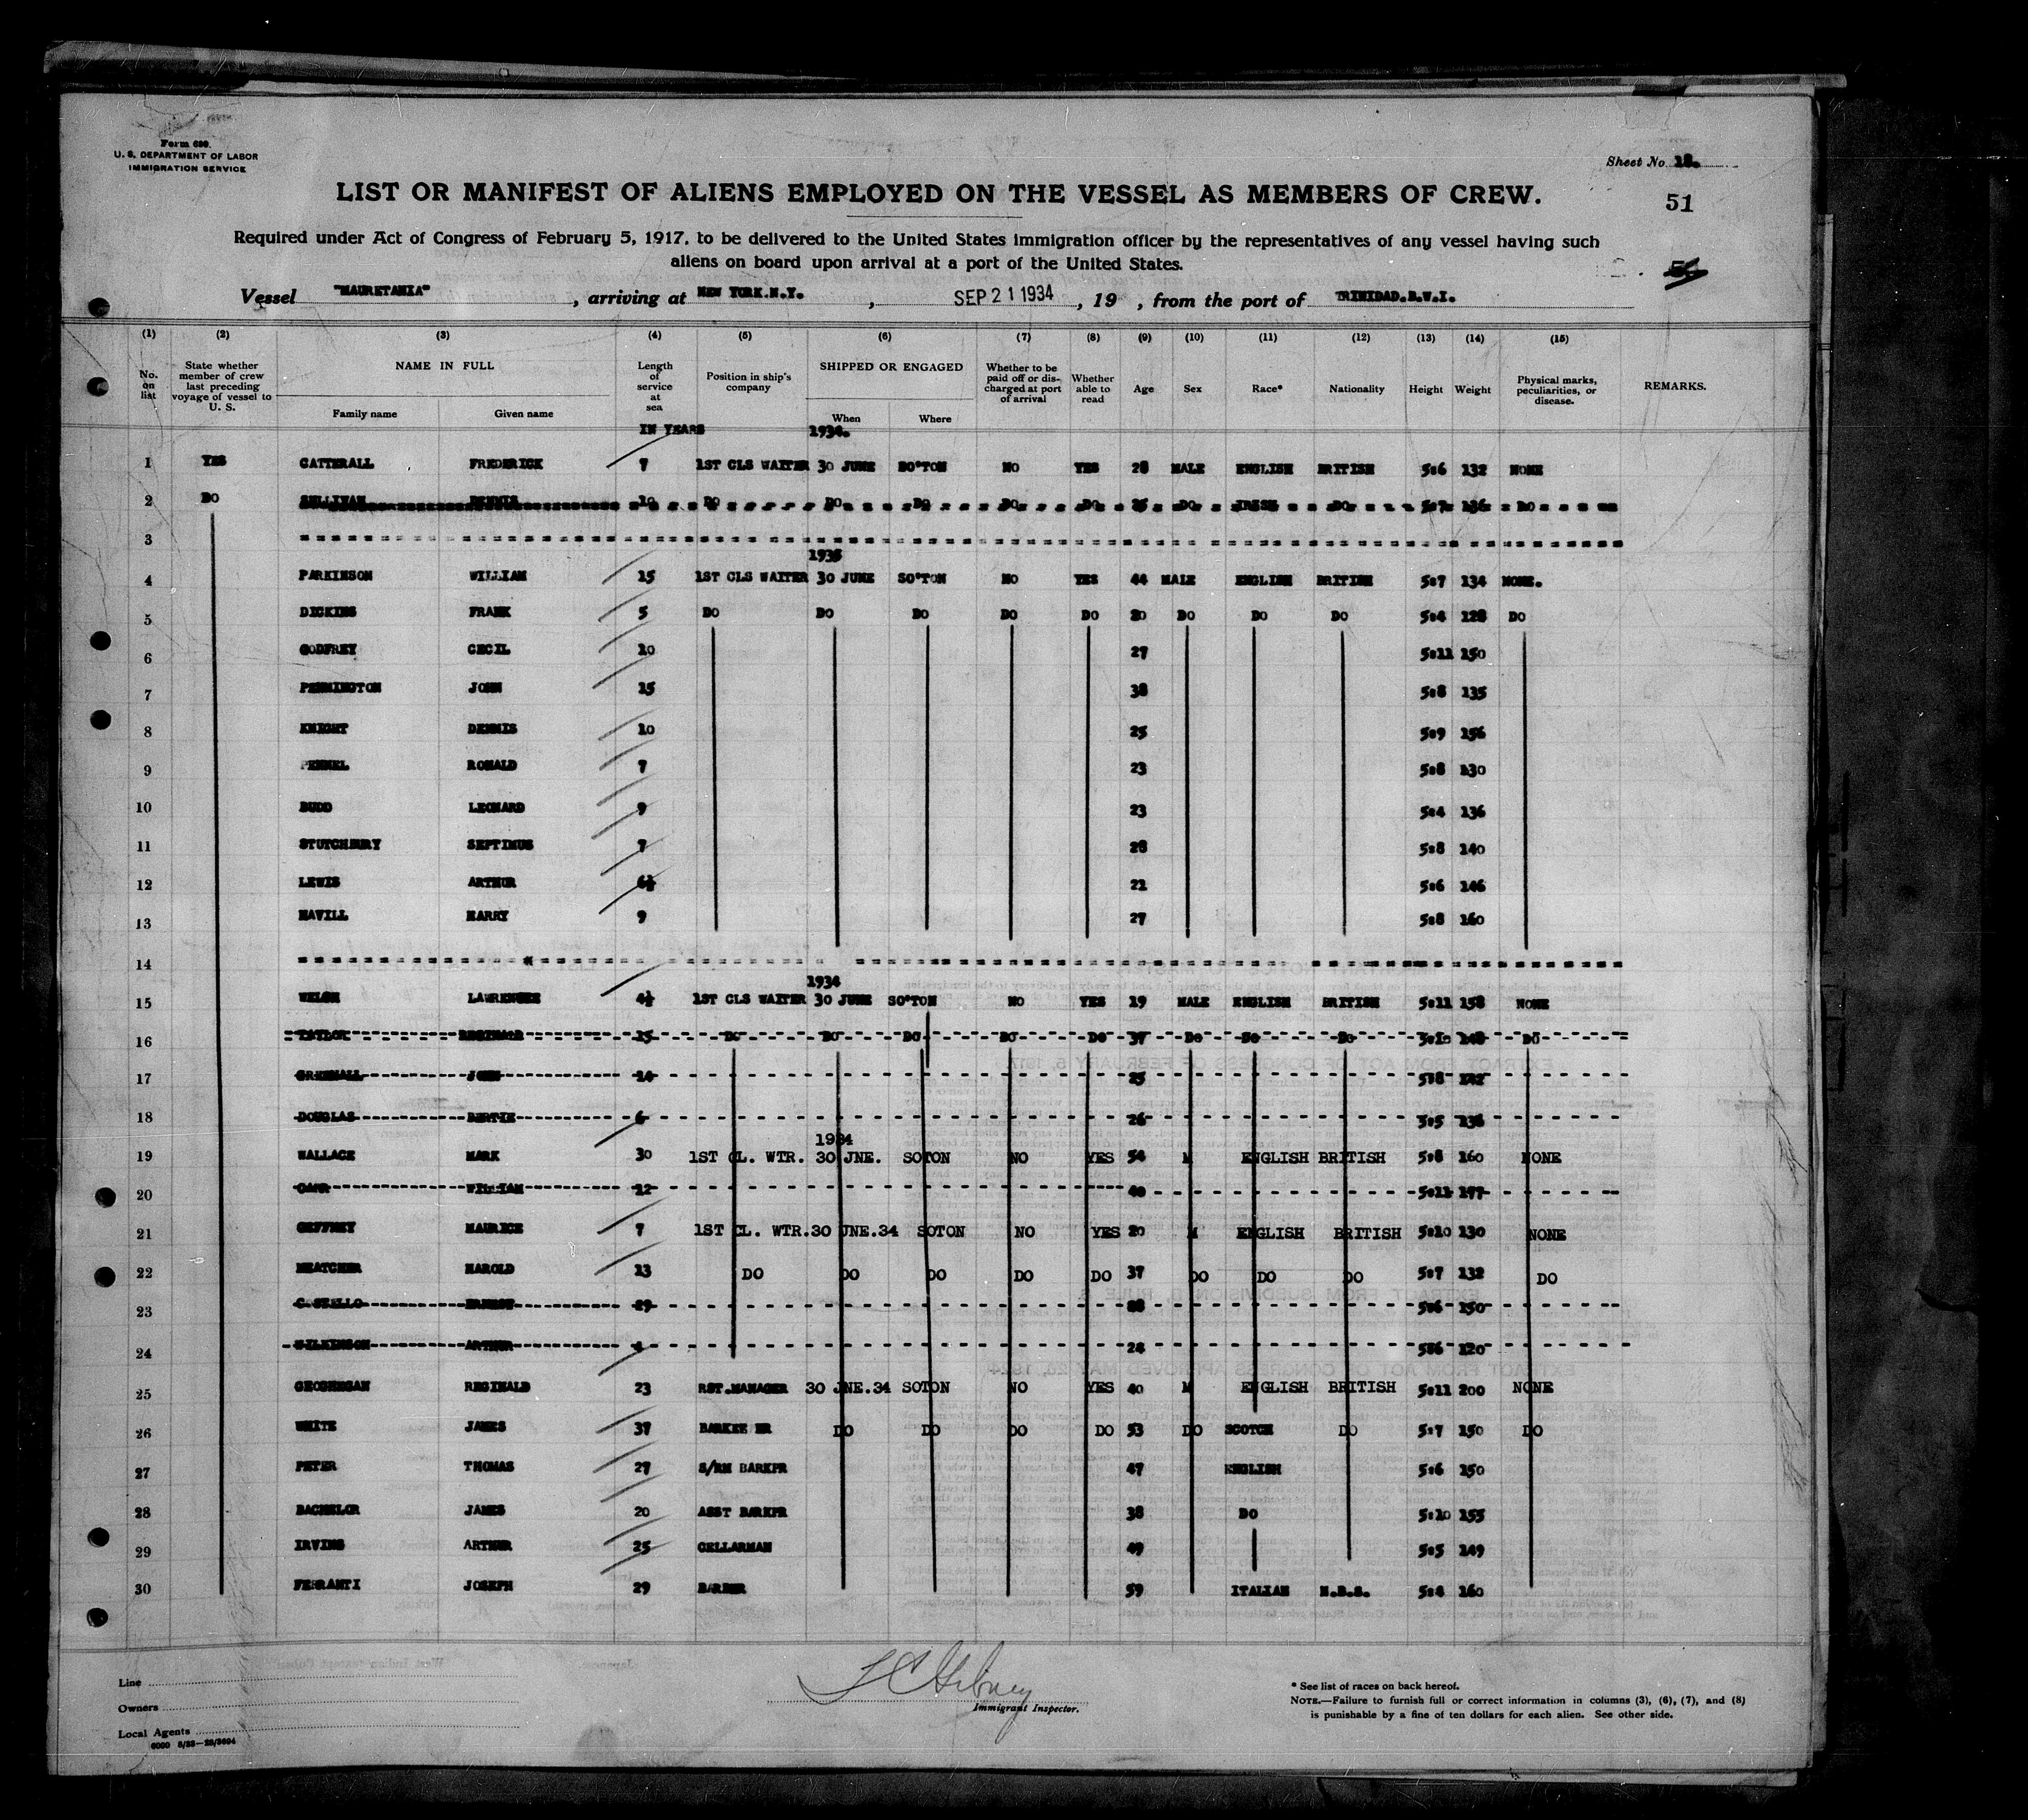 Form 680.
U. S. DEPARTMENT OF LABOR
IMMIGRATION SERVICE
Sheet No. 18.
LIST OR MANIFEST OF ALIENS EMPLOYED ON THE VESSEL AS MEMBERS OF CREW.
51
Required under Act of Congress of February 5, 1917, to be delivered to the United States immigration officer by the representatives of any vessel having such
aliens on board upon arrival at a port of the United States.
Vessel "MAURETANIA", arriving at NEW YORK.N.Y., SEP 21 1934, 19 , from the port of TRINIDAD.B.W.I.
(1) (2) (3) (4) (5) (6) (7) (8) (9) (10) (11) (12) (13) (14) (15)
No. on list State whether member of crew last preceding voyage of vessel to U. S. NAME IN FULL Family name Given name Length of service at sea Position in ship's company SHIPPED OR ENGAGED When Where Whether to be paid off or discharged at port of arrival Whether able to read Age Sex Race* Nationality Height Weight Physical marks, peculiarities, or disease. REMARKS.
IN YEARS 1934.
1 YES CATTERALL FREDERICK 7 1ST CLS WAITER 30 JUNE SO'TON NO YES 28 MALE ENGLISH BRITISH 5:6 132 NONE
2 DO SULLIVAN DENNIS 10 DO DO DO DO DO DO IRISH DO 5:7 136 DO
3
1935
4 PARKINSON WILLIAM 15 1ST CLS WAITER 30 JUNE SO'TON NO YES 44 MALE ENGLISH BRITISH 5:7 134 NONE.
5 DICKINS FRANK 5 DO DO DO DO DO 20 DO DO DO 5:4 128 DO
6 GODFREY CECIL 10 27 5:11 150
7 PENNINGTON JOHN 15 38 5:8 135
8 KNIGHT DENNIS 10 25 5:9 156
9 PENNEL RONALD 7 23 5:8 130
10 BUDD LEONARD 9 23 5:4 136
11 STUTCHBURY SEPTIMUS 7 28 5:8 140
12 LEWIS ARTHUR 6½ 21 5:6 146
13 HAVILL HARRY 9 27 5:8 160
14
1934
15 WELSH LAWRENCE 4½ 1ST CLS WAITER 30 JUNE SO'TON NO YES 19 MALE ENGLISH BRITISH 5:11 158 NONE
16 TAYLOR REGINALD 15 DO DO DO DO DO 37 DO DO DO 5:10 148 DO
17 GREENALL JOHN 14 25 5:8
18 DOUGLAS BERTIE 6 26 5:5 136
1934
19 WALLACE MARK 30 1ST CL. WTR. 30 JNE. SOTON NO YES 54 M ENGLISH BRITISH 5:8 160 NONE
20 CARR WILLIAM 12 40 5:11 177
21 GEFFREY MAURICE 7 1ST CL. WTR. 30 JNE.34 SOTON NO YES 20 M ENGLISH BRITISH 5:10 130 NONE
22 HEATCHER HAROLD 13 DO DO DO DO DO 37 DO DO DO 5:7 132 DO
23 COSTELLO ERNEST 29 5:6 150
24 WILKINSON ARTHUR 4 24 5:6 120
25 GEOGHEGAN REGINALD 23 RST.MANAGER 30 JNE.34 SOTON NO YES 40 M ENGLISH BRITISH 5:11 200 NONE
26 WHITE JAMES 37 DO DO DO DO 53 DO SCOTCH DO 5:7 150 DO
27 PETER THOMAS 27 S/RM BARKPR 47 ENGLISH 5:6 150
28 BACHELOR JAMES 20 ASST BARKPR 38 DO 5:10 155
29 IRVING ARTHUR 25 CELLARMAN 49 5:5 149
30 FERRANTI JOSEPH 29 BARBER 59 ITALIAN N.B.S. 5:4 160
Line
Owners
Local Agents
Immigrant Inspector.
* See list of races on back hereof.
NOTE.—Failure to furnish full or correct information in columns (3), (6), (7), and (8)
is punishable by a fine of ten dollars for each alien. See other side.